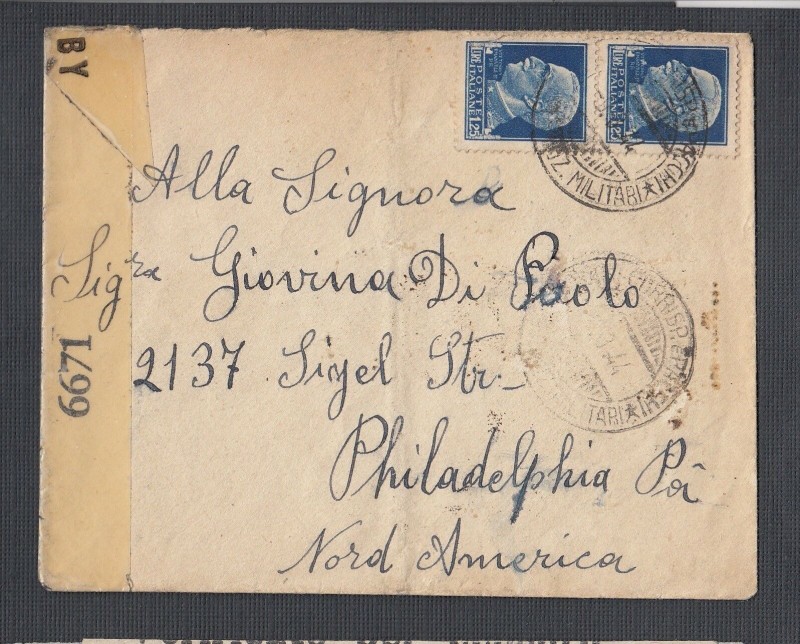 BY
6671
LIRE
POSTE
ITALIANE
1,25
LIRE
POSTE
ITALIANE
1,25
MILITARI
PACCHI
Alla Signora
Sigra Giovina Di Paolo
2137 Sigel Str.
Philadelphia Pa
Nord America
CORRISP. E PACCHI
44